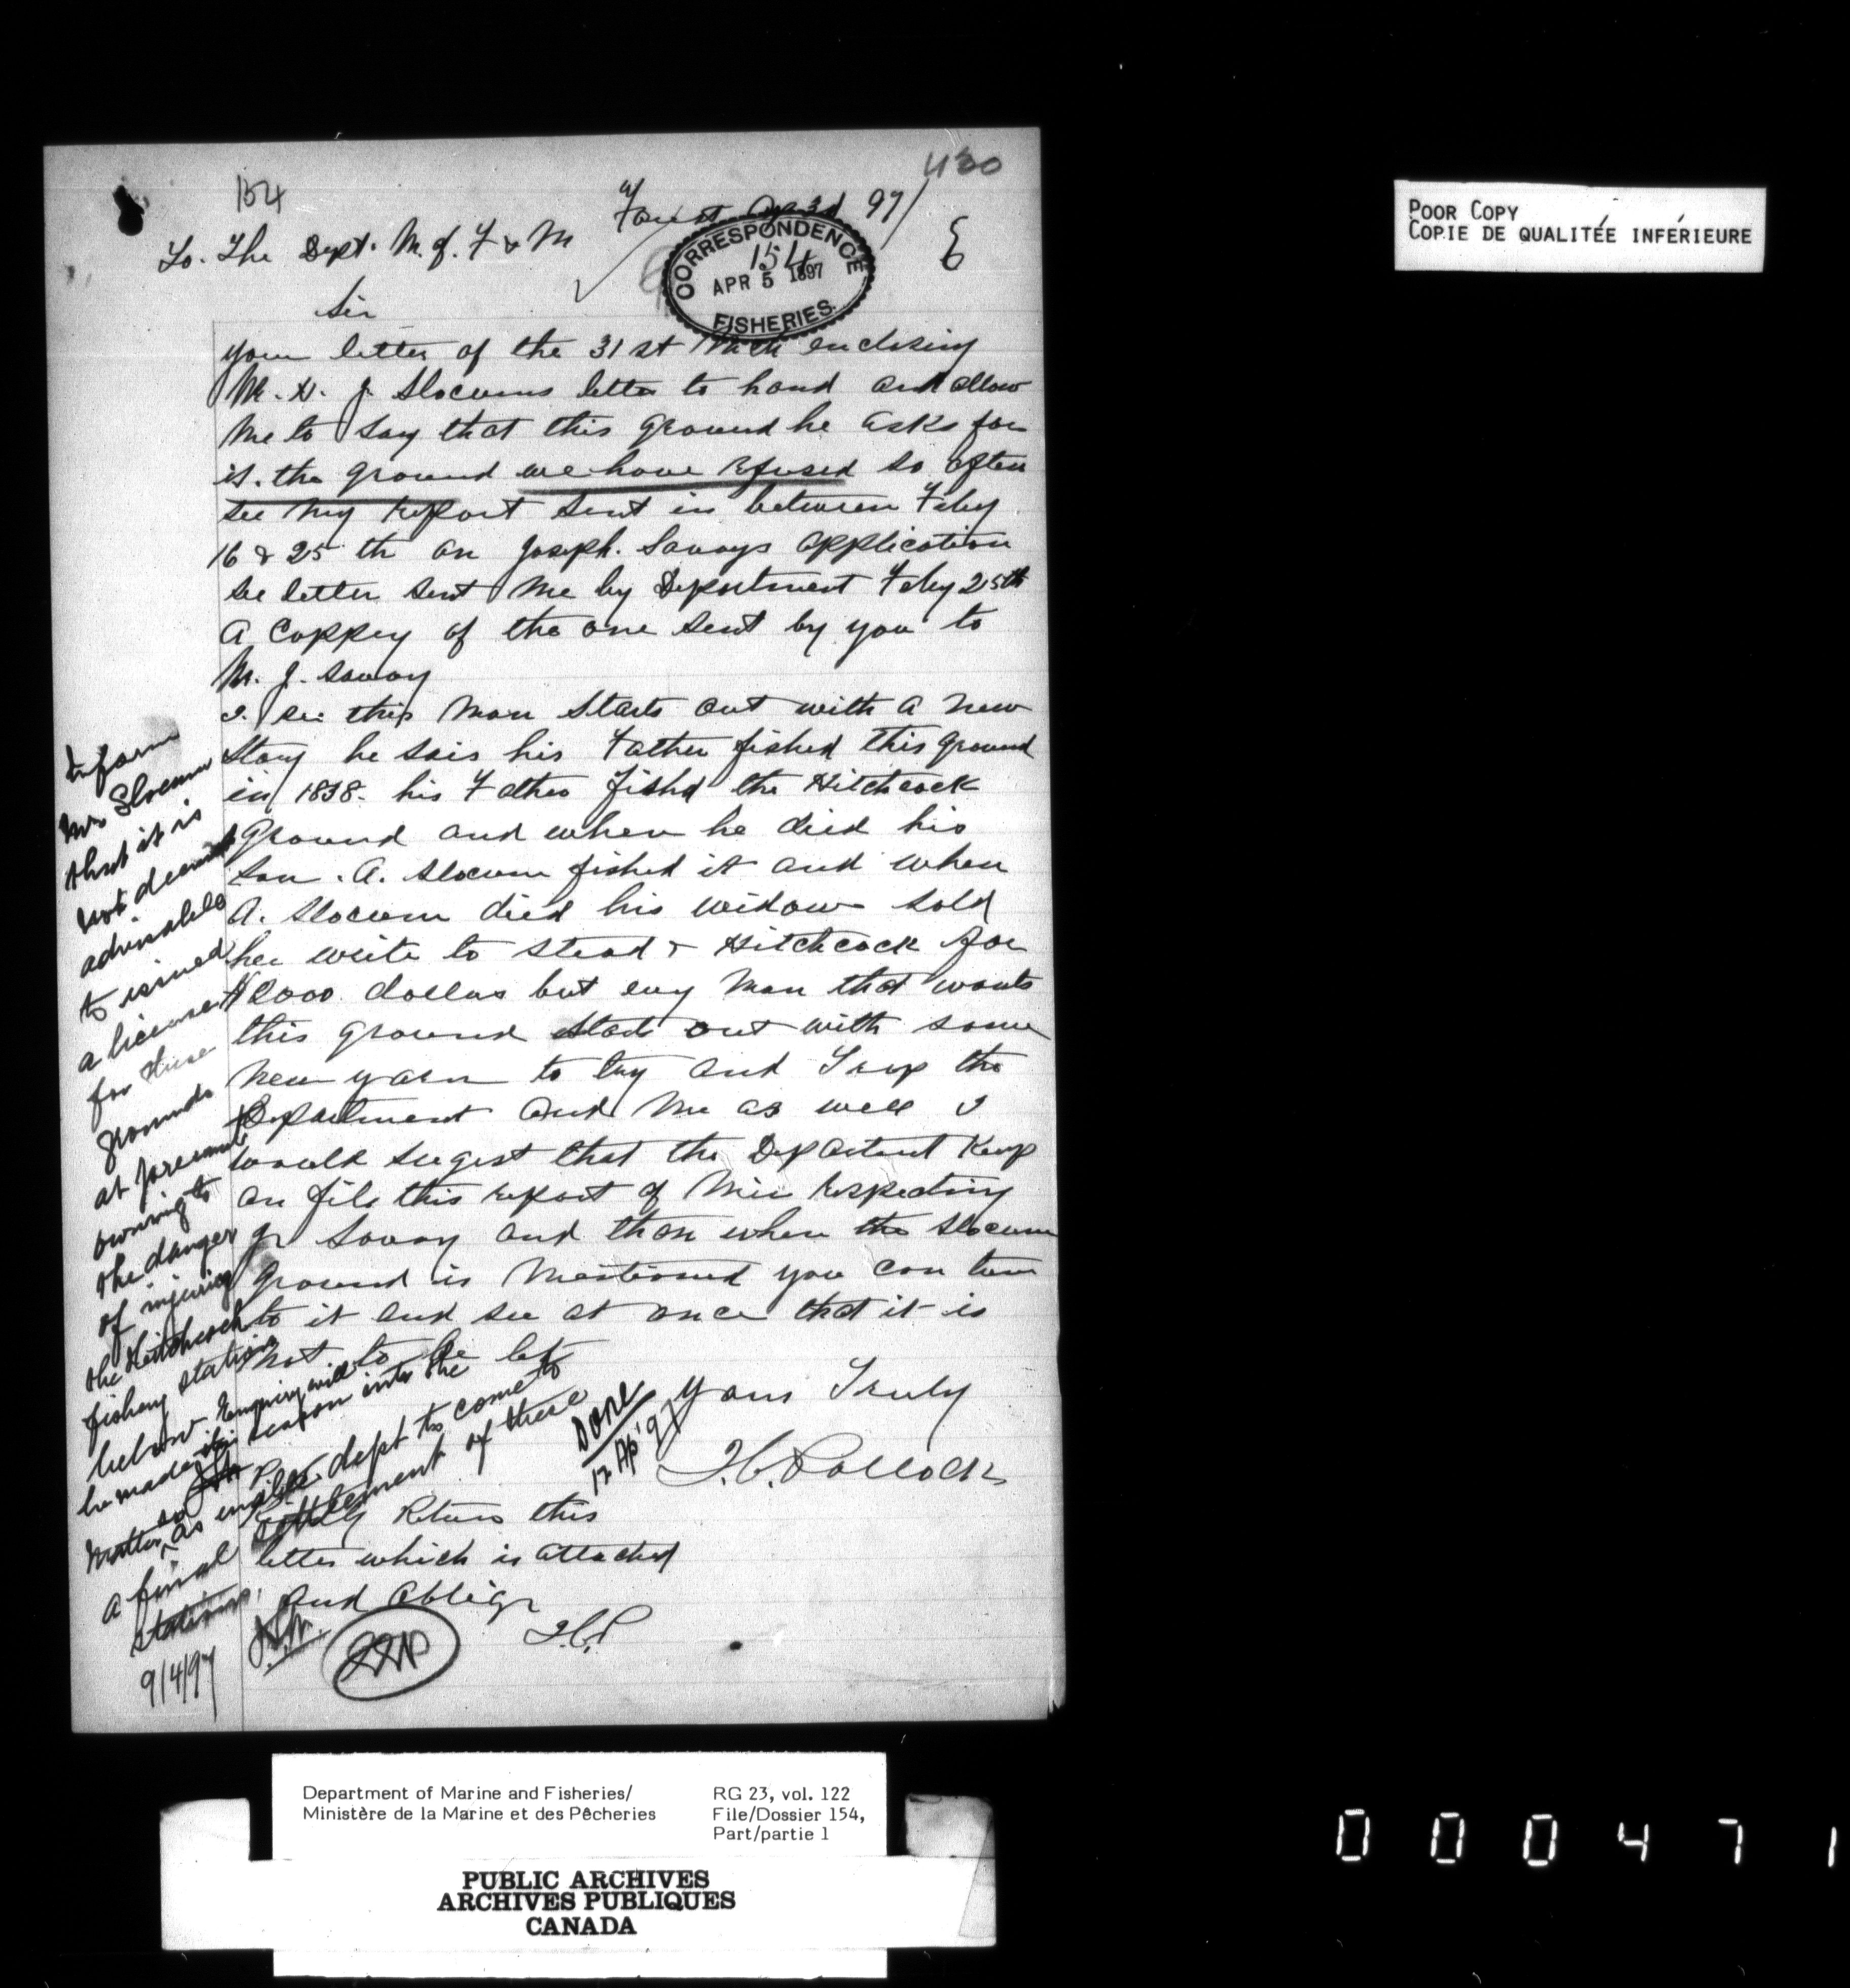 430
154
Forest Ap 3d 97/
To. The Dept. M. of. F & M
E
CORRESPONDENCE
154
APR 5 1897
FISHERIES.
Sir
your letter of the 31st Mch enclosing
Mr. H. J. Slocums letter to hand and allow
me to say that this ground he asks for
is. the ground we have refused so often
see my report sent in between Feby
16 & 25th on Joseph. Savoys application
see letter sent me by Department Feby 25th
a coppey of the one sent by you to
Mr. J. Savoy
I. see this man starts out with a new
story he sais his Father fished this ground
in 1838. his Father fishd the Hitchcock
Ground and when he died his
son. A. Slocum fished it and when
A. Slocum died his widow sold
her write to Stead & Hitchcock for
$2000. dollars but eny man that wants
this ground starts out with some
new yarn to try and Trap the
Department and me as well I
would sugest that the Department Keep
on file this report of Mii respecting
Jr Savoy and than when the Slocum
Ground is mentioned you can turn
to it and see at once that it is
not to be let
yours Truly
H. C. Pollock
Return this
letter which is attached
and oblige
Inform
Mr Slocum
that it is
not deemed
advisable
to issued
a license
for these
grounds
at present
owning to
the danger
of injuring
the Hitchcock
fishery station
below. Enquiry will
be made in season into the
matter, so as enable dept to come to
a final settlement of these
stations.
9/4/97
Done
12 Ap '97
POOR COPY
COPIE DE QUALITÉE INFÉRIEURE
Department of Marine and Fisheries/
Ministère de la Marine et des Pêcheries
RG 23, vol. 122
File/Dossier 154,
Part/partie 1
PUBLIC ARCHIVES
ARCHIVES PUBLIQUES
CANADA
000471